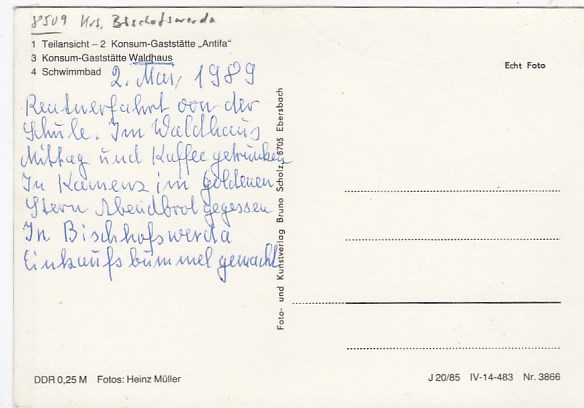 8509 Krs. Bischofswerda
1 Teilansicht – 2 Konsum-Gaststätte „Antifa“
3 Konsum-Gaststätte Waldhaus
4 Schwimmbad
Echt Foto
2. Mai, 1989
Rentnerfahrt von der
Schule. Im Waldhaus
Mittag und Kaffee getrunken
In Kamenz im goldenen
Stern Abendbrot gegessen
In Bischofswerda
Einkaufsbummel gemacht
Foto- und Kunstverlag Bruno Scholz, 8705 Ebersbach
DDR 0,25 M Fotos: Heinz Müller
J 20/85 IV-14-483 Nr. 3866